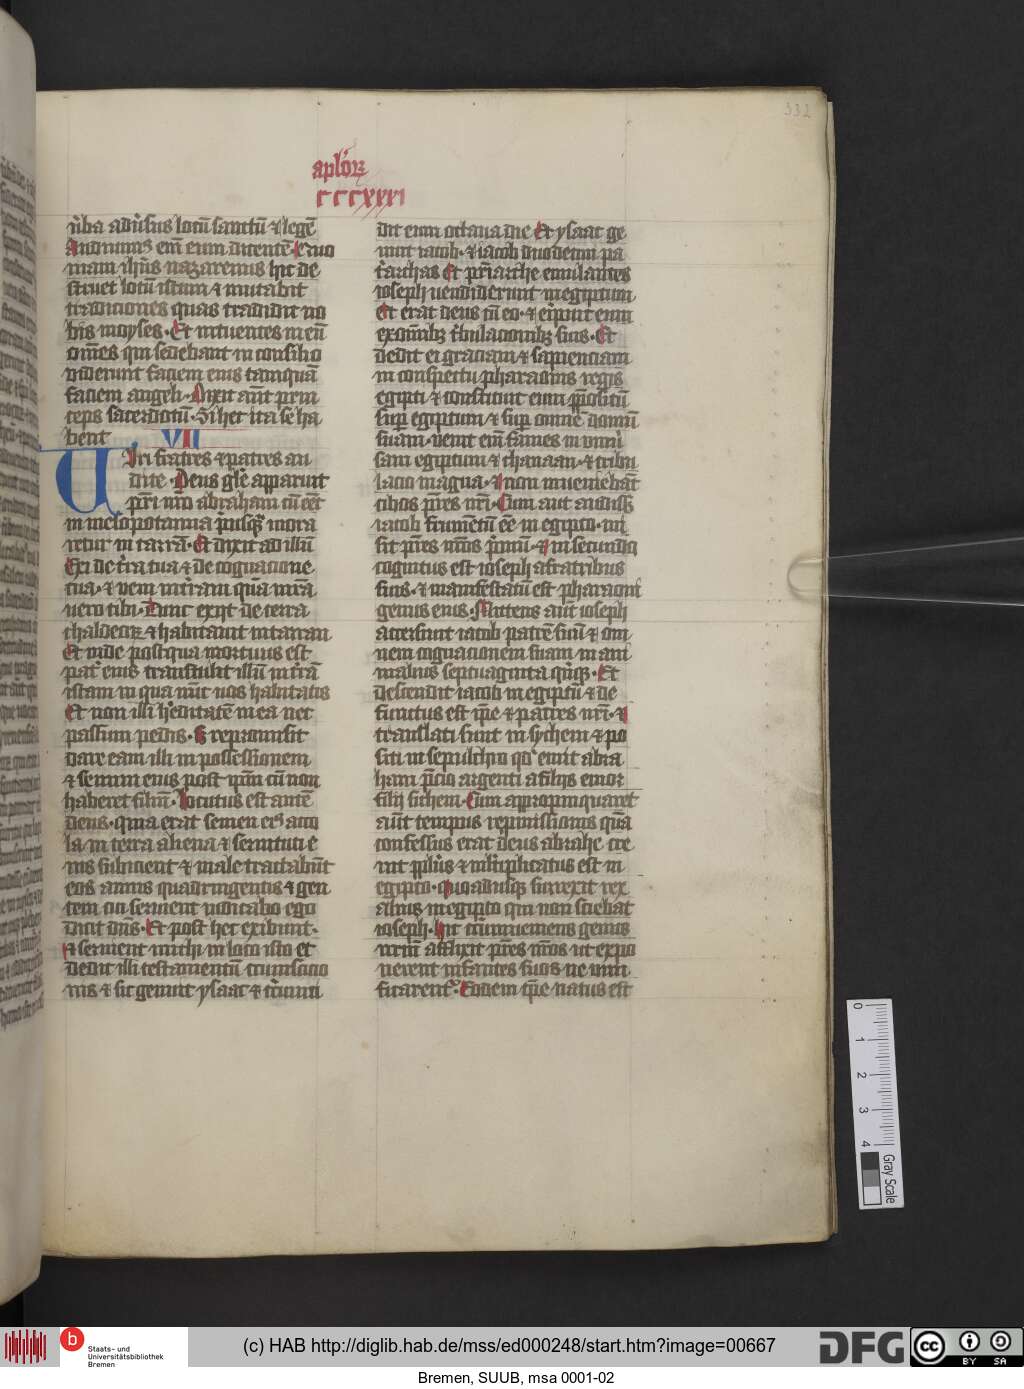 332
aplōꝝ
cccxxxi
ūba adūsus locū sanctū ⁊ legē
Audiuim⁹ em̄ eum dicentē Quo
niam ihūs nazarenus hic de
struet locū istum ⁊ mutabit
traditiones quas tradidit uo
bis moyses · Et intuentes in eū
om̄es qui sedebant in consilio
viderunt faciem eius tamquā
faciem angeli · Dixit aūt prin
ceps sacerdotū · Si hec ita se ha
bent VII
Uiri fratres ⁊ patres au
dite · Deus glīe apparuit
pr̄i nrō abraham cū eēt
in mesopotamia p̄usq̄ꝫ mora
retur in carrā · Et dixit ad illū
Exi de t̄ra tua ⁊ de cognacione
tua · ⁊ veni in t̄ram quā mrā
uero tibi · Tunc exijt de terra
chaldeoꝝ ⁊ habitauit in carran
Et inde postqua mortuus est
pat̄ eius transtulit illū in t̄rā
istam in qua nūc uos habitatis
Et non illi h̓editatē in ea nec
passum pedis · S repromisit
dare eam illi in possessionem
⁊ semini eius post ip̄m cū non
haberet filiū · Locutus est autē
deus · quia erat semen ei⁹ acco
la in terra aliena ⁊ seruituti e
nis subicient ⁊ male tractabūt
eos annis quadringentis ⁊ gen
tem cui seruient iudicabo ego
Dicit dn̄s · Et post hec exibunt ·
⁊ seruient michi in loco isto et
dedit illi testamentū circumscicio
nis ⁊ sic genuit ysaac ⁊ c̄rcumci
dit eum octaua die Et ysaac ge
nuit iacob · ⁊ iacob duodecim pa
t̄archas Et pr̄iarche emulantes
ioseph uendiderunt in egiptum
et erat deus cū eo · ⁊ eripuit eum
ex om̄ibꝫ t̄bulacionibꝫ suis · Et
dedit ei graciam ⁊ sapienciam
in conspectu pharaonis regis
egipti ⁊ constituit eum p̄positū
sup̄ egiptum ⁊ sup̄ omnē domū
suam · uenit em̄ fames in uniū
sam egiptum ⁊ chanaan · ⁊ tribu
lacio magna · ⁊ non inueniebāt
cibos pr̄es nr̄i · Cum aut audissꝫ
iacob frumētū eē in egipto · mi
sit pr̄es nr̄os p̄mū · ⁊ in secundo
cognitus est ioseph a fratribus
suis · ⁊ manifestatū est pharaoni
genus eius · Mittens aūt ioseph
accersiuit iacob patrē suū ⁊ om
nem cognacionem suam in ani
mabus septuaginta qn̄qꝫ · Et
descendit iacob in egiptū ⁊ de
functus est ip̄e ⁊ patres nr̄i · ⁊
translati sunt in sychem ⁊ po
siti in sepulchro qd̓ emit abra
ham p̄cio argenti a filijs emor
filij sichem · Cum appropinquaret
aūt tempus repmissionis quā
confessus erat deus abrahe cre
uit ppl̄us ⁊ mltiplicatus est in
egipto · Quoadusqꝫ surrexit rex
alius in egipto qui non sciebat
ioseph · Hic circumueniens genus
nrm̄ afflixit pr̄es nr̄os ut expo
nerent infantes suos ne uiui
ficarent̓ · Eodem tp̄e natus est
0
1
2
3
4
Gray Scale
b
Staats- und
Universitätsbibliothek
Bremen
(c) HAB http://diglib.hab.de/mss/ed000248/start.htm?image=00667
DFG
cc
BY SA
Bremen, SUUB, msa 0001-02